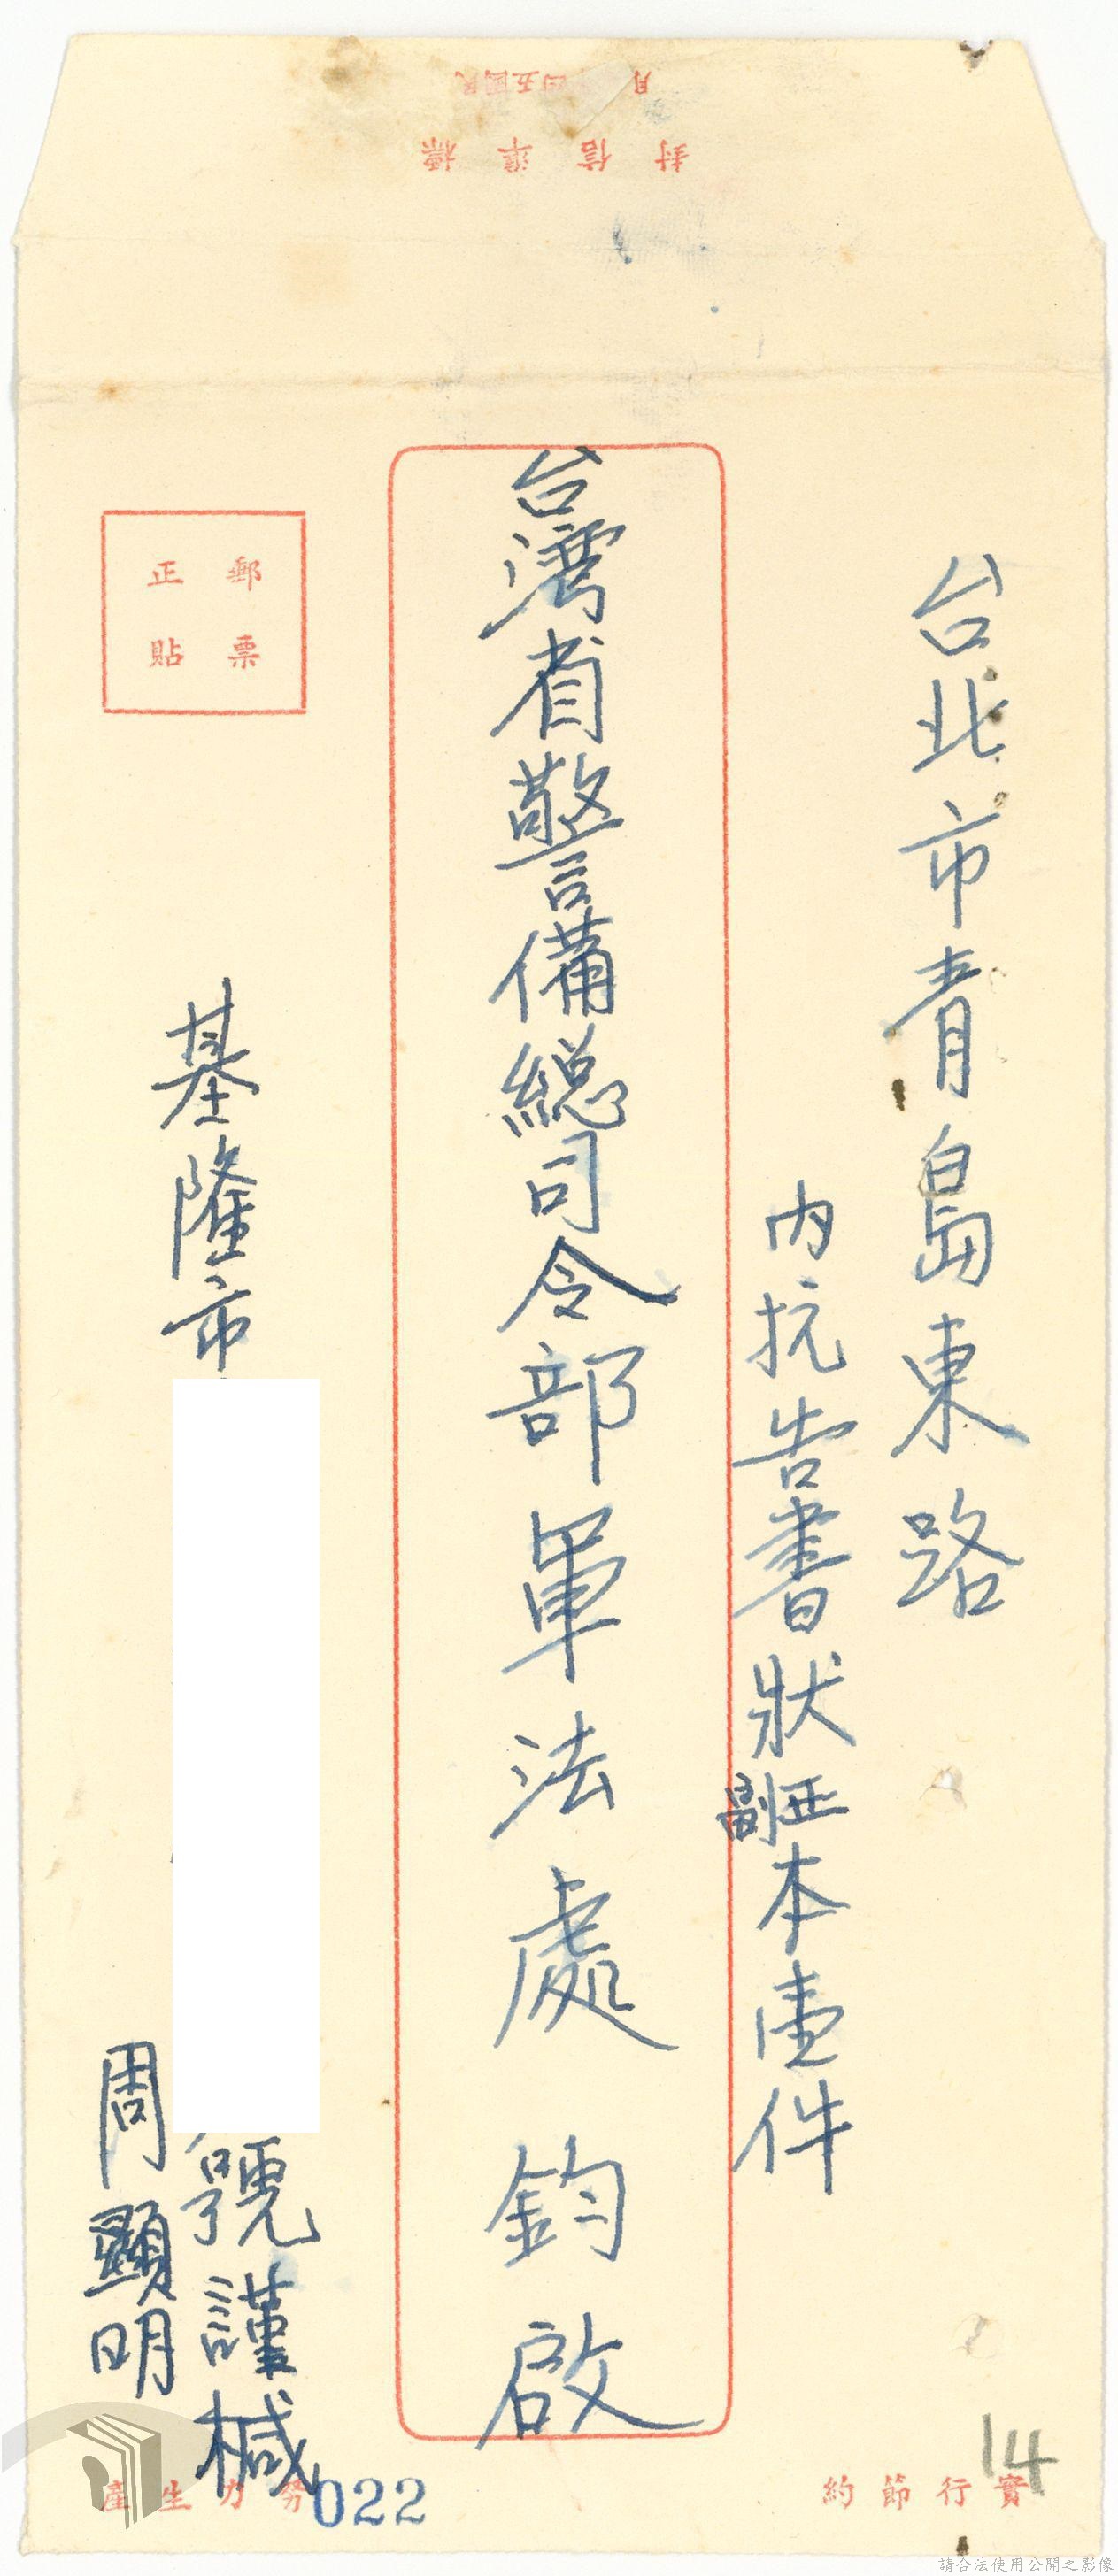 標準信封
台北市青島東路
內抗告書狀正副本壹件
台灣省警備總司令部軍法處 鈞啟
郵票
正貼
基隆市
號謹椷
周顯明
實行節約
努力生產
022
14
請合法使用公開之影像